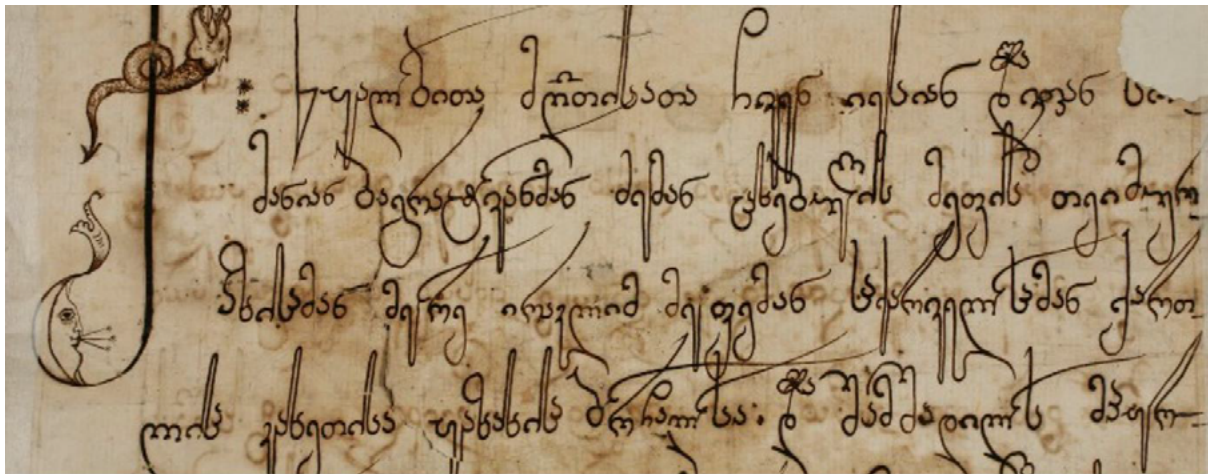 წყალობითა ღ~თისათა ჩვენ იესიან დავითიან სოლო
მონიან ბაგრატოვანმან ძემან ცხებულის მეფის თეიმურაზ
ისამან მეორე ირაკლიმ მეფემან საქართველოსამან ქართ
ლისა კახეთისა ყაზახისა ბორჩალოსა და შამშადილოს მპყრო